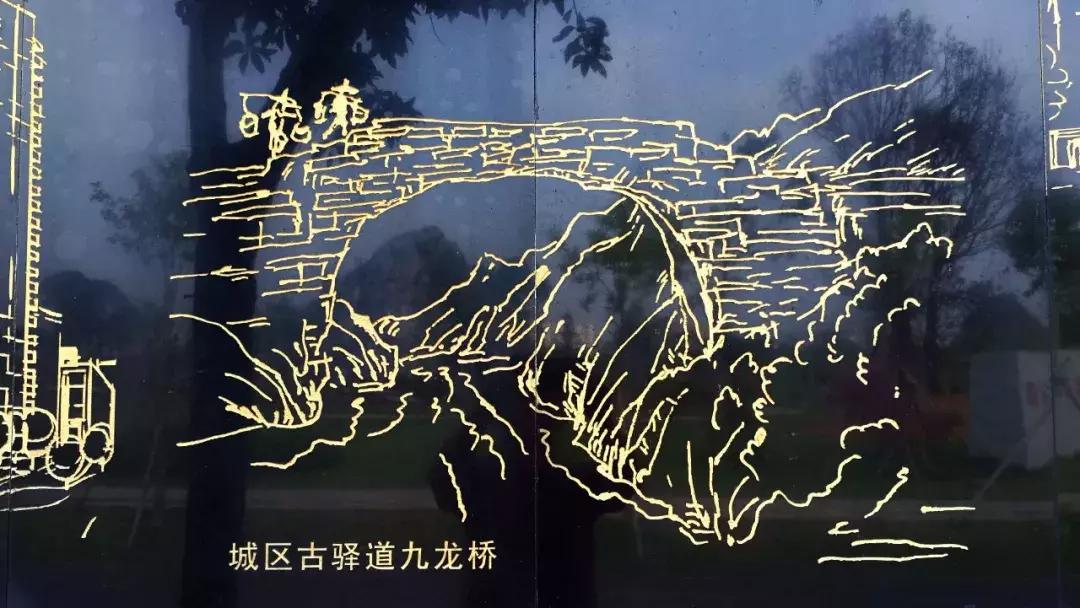 城区古驿道九龙桥